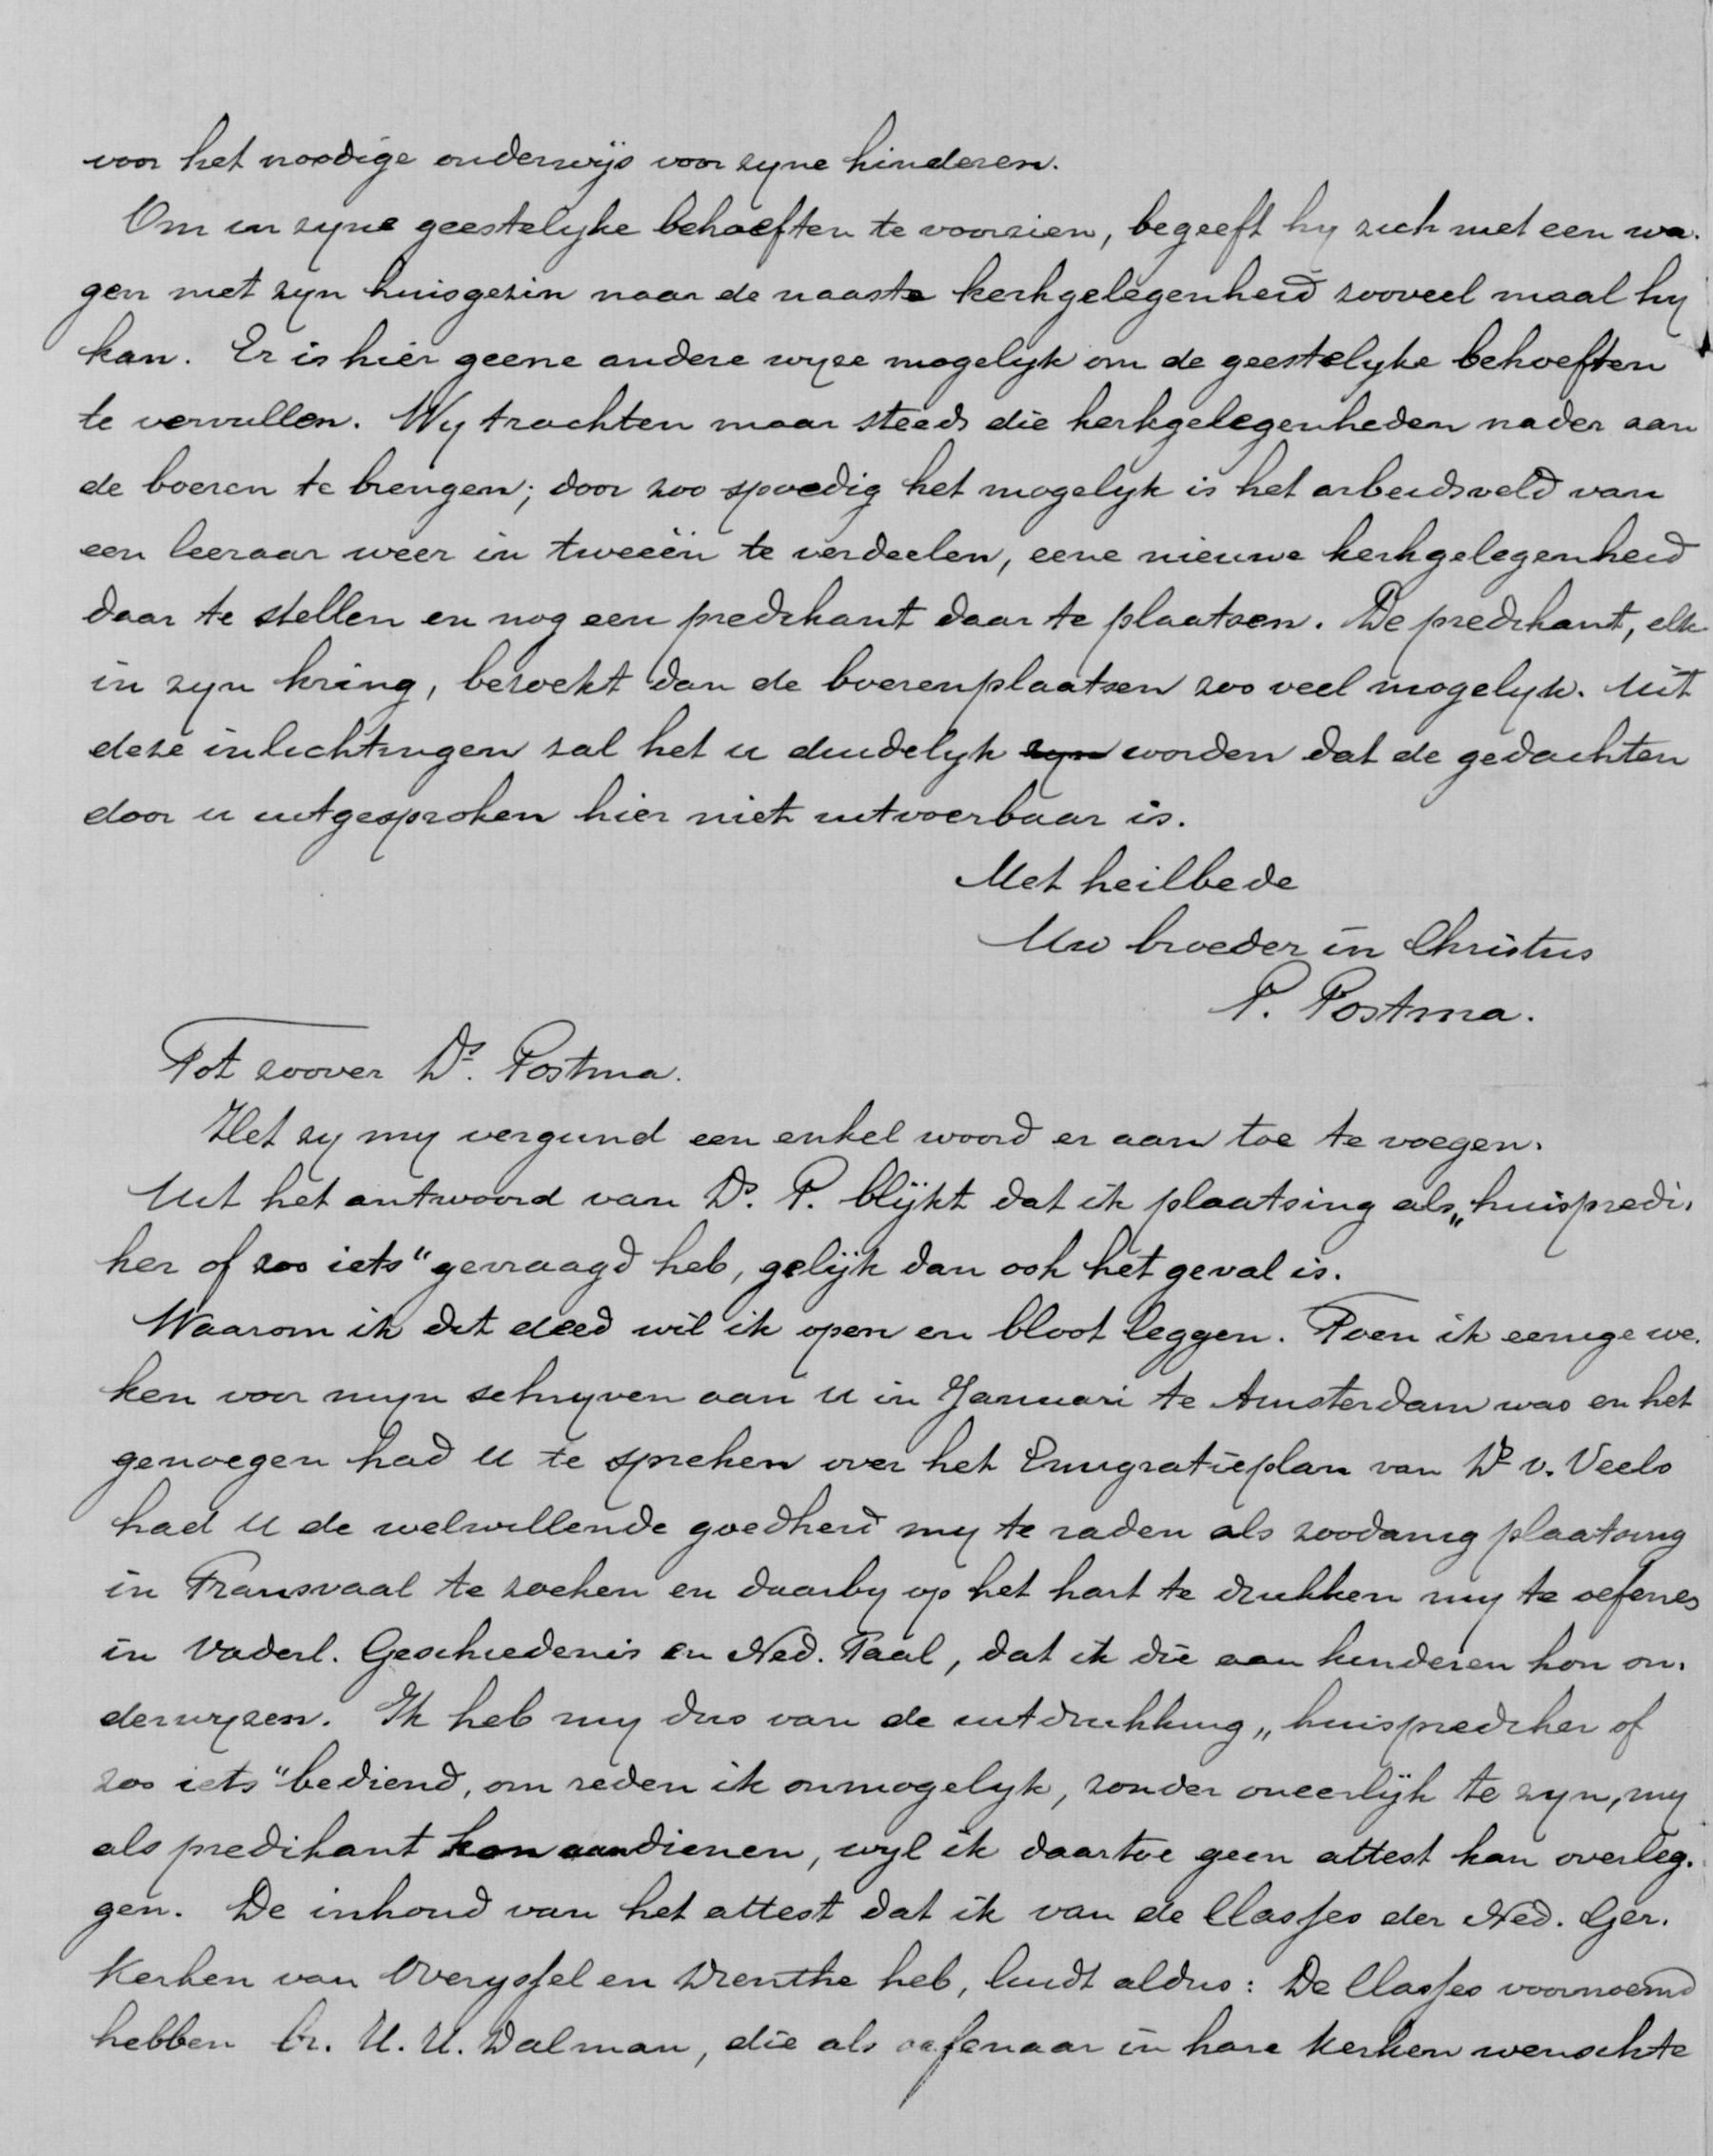 voor het noodige onderwijs voor zyne kinderen.
Om in zyne geestelyke behoeften te voorzien, begeeft hy zich met een wa-
gen met zyn huisgezin naar de naaste kerkgelegenheid zooveel maal hy
kan. Er is hier geene andere wyze mogelyk om de geestelyke behoeften
te vervullen. Wy trachten maar steeds die kerkgelegenheden nader aan
de boeren te brengen; door zoo spoedig het mogelyk is het arbeidsveld van
een leeraar weer in tweeën te verdeelen, eene nieuwe kerkgelegenheid
daar te stellen en nog een predikant daar te plaatsen. De predikant, elk
in zyn kring, bezoekt dan de boerenplaatsen zoo veel mogelyk. Uit
deze inlichtingen zal het u duidelyk zyn worden dat de gedachten
door u uitgesproken hier niet uitvoerbaar is.
Met heilbede
Uw broeder in Christus
P. Postma.
Tot zoover Ds. Postma.
Het zy my vergund een enkel woord er aan toe te voegen.
Uit het antwoord van Ds. P. blijkt dat ik plaatsing als „huispredi-
ker of zoo iets" gevraagd heb, gelijk dan ook het geval is.
Waarom ik dit deed wil ik open en bloot leggen. Toen ik eenige we-
ken voor myn schryven aan U in Januari te Amsterdam was en het
genoegen had U te spreken over het Emigratieplan van Ds v. Veelo
had U de welwillende goedheid my te raden als zoodanig plaatsing
in Transvaal te zoeken en daarby op het hart te drukken my te oefenen
in Vaderl. Geschiedenis en Ned. Taal, dat ik die aan kinderen kon on-
derwyzen. Ik heb my dus van de uitdrukking „huisprediker of
zoo iets" bediend, om reden ik onmogelyk, zonder oneerlijk te zyn, my
als predikant kon aandienen, wyl ik daartoe geen attest kan overleg-
gen. De inhoud van het attest dat ik van de Classes der Ned. Ger.
Kerken van Overyssel en Drenthe heb, luidt aldus: De Classes voornoemd
hebben br. U. U. Dalman, die als oefenaar in hare Kerken wenschte